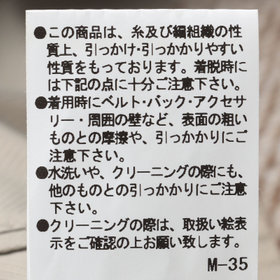 ●この商品は、糸及び編組織の性
質上、引っかけ・引っかかりやすい
性質をもっております。着脱時に
は下記の点に十分ご注意下さい。
●着用時にベルト・バック・アクセサ
リー・周囲の壁など、表面の粗い
ものとの摩擦や、引っかかりにご
注意下さい。
●水洗いや、クリーニングの際にも、
他のものとの引っかかりにご注
意下さい。
●クリーニングの際は、取扱い絵表
示をご確認の上お願い致します。
M-35